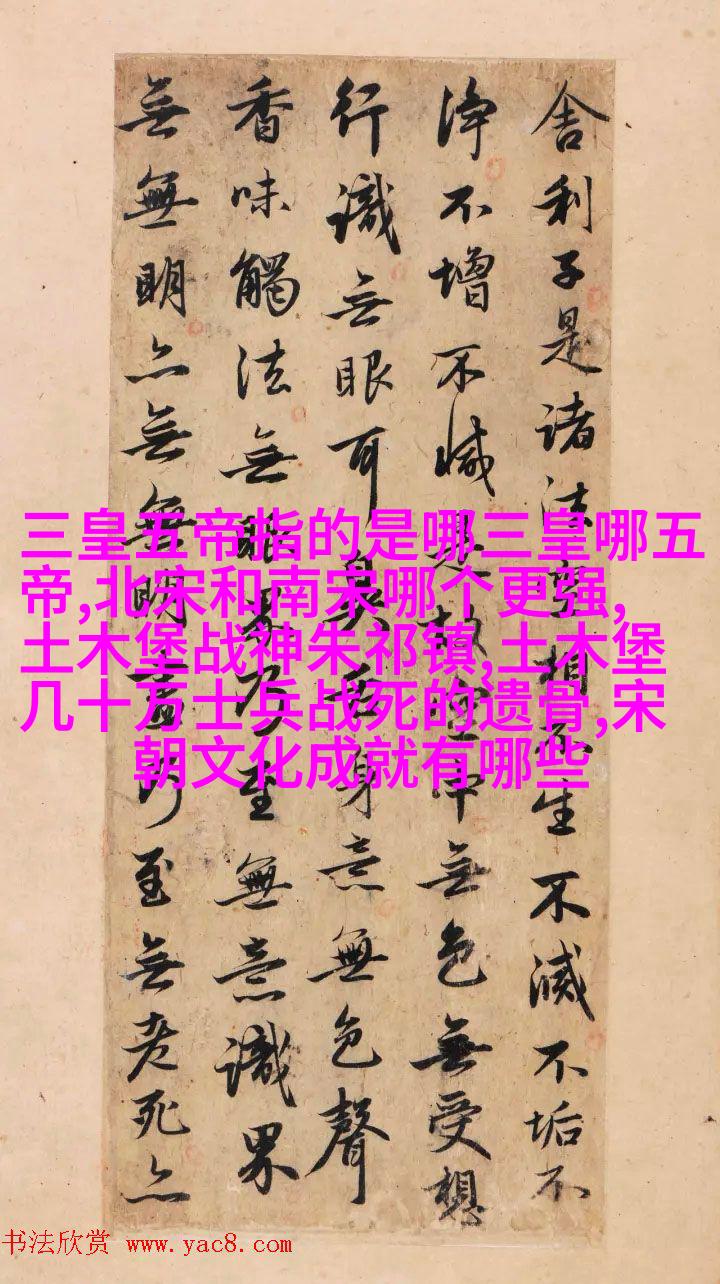 舍利子是諸法空相不生不滅不垢不
淨不增不減是故空中無色無受想
行識無眼耳鼻舌身意無色聲
香味觸法無眼界乃至無意識界
無無明亦無無明盡乃至無老死亦
三皇五帝指的是哪三皇哪五
帝,北宋和南宋哪个更强,
土木堡战神朱祁镇,土木堡
几十万士兵战死的遗骨,宋
朝文化成就有哪些
书法欣赏 www.yac8.com